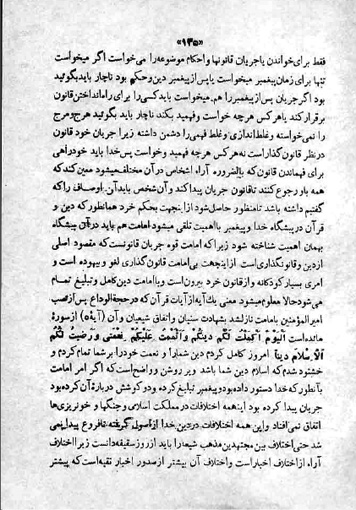 «۱۳۵»
فقط برای خواندن یا جریان قانونها و احکام موضوعه را می‌خواست اگر میخواست
تنها برای زمان پیغمبر میخواست یا پس از پیغمبر دین و حکم بود ناچار باید بگوئید
بود اگر جریان پس از پیغمبر را هم میخواست باید کسی را برای راه انداختن قانون
برقرار کند یا هر کس هر چه خواست و فهمید بکند ناچار باید بگوئید هرج و مرج
را نمی‌خواسته و غلط اندازی و غلط فهمی را دشمن داشته زیرا جریان خود قانون
در نظر قانون گذار است نه هر کس هر چه فهمید و خواست پس خدا باید خود راهی
برای فهماندن قانون که بالضروره آراء اشخاص در آن مختلف میشود معین کند که
همه باو رجوع کنند تا قانون جریان پیدا کند و آن شخص باید آن اوصافی را که
گفتیم داشته باشد تا منظور حاصل شود از اینجهت بحکم خرد همانطور که دین و
قرآن در پیشگاه خدا و پیغمبر با اهمیت تلقی میشود امامت هم باید در آن پیشگاه
بهمان اهمیت شناخته شود زیرا که امامت قوه جریان قانونست که مقصود اصلی
از دین و قانونگذاری است. از اینجهت بی امامت قانون گذاری لغو و بیهوده است و
امری بسیار کودکانه و از قانون خرد بیرونست و با امامت دین کامل و تبلیغ تمام
می‌شود حالا معلوم میشود معنی یك آیه از آیات قرآن که در حجةالوداع پس از نصب
امیرالمؤمنین بامامت نازلشد بشهادت سنیان و اتفاق شیعیان و آن (آیه۵) از سورهٔ
مائده است اَلْیَوْمَ اَکْمَلْتُ لَکُمْ دینَکُمْ وَاَتْمَمْتُ عَلَیْکُمْ نِعْمَتی وَ رَضیتُ لَکُمُ
الْاِسْلامَ دیناً امروز کامل کردم دین شما را و نعمت خود را بر شما تمام کردم و
خشنود شدم که اسلام دین شما باشد و پر روشن و واضح است که اگر امر امامت
بآنطور که خدا دستور داده بود و پیغمبر تبلیغ کرده بود و کوشش درباره آن کرده بود
جریان پیدا کرده بود اینهمه اختلافات در مملکت اسلامی و جنگها و خونریزی‌ها
اتفاق نمی افتاد و این همه اختلافات در دین خدا از اصول گرفته تا فروع پیدا نمی
شد حتی اختلاف بین مجتهدین مذهب شیعه را باید از روز سقیفه دانست زیرا اختلاف
آراء. از اختلاف اخبار است و اختلاف آن بیشتر از صدور اخبار تقیه است که پیشتر